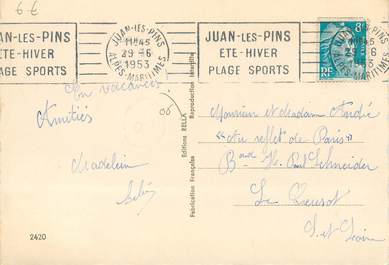 6 €
JUAN-LES-PINS
ÉTÉ-HIVER
PLAGE SPORTS
JUAN-LES-PINS
11H45
29-6
1953
ALPES-MARITIMES
JUAN-LES-PINS
ÉTÉ-HIVER
PLAGE SPORTS
11H45
29-6
1953
ALPES-MARITIMES
8F
RF
En vacances
Amitiés
Madelein
2420
Fabrication Française Editions RELLA Reproduction Interdite
Monsieur et Madam André
"Au reflet de Paris"
B H. Paul Schneider
Le Creusot
S. et Loire